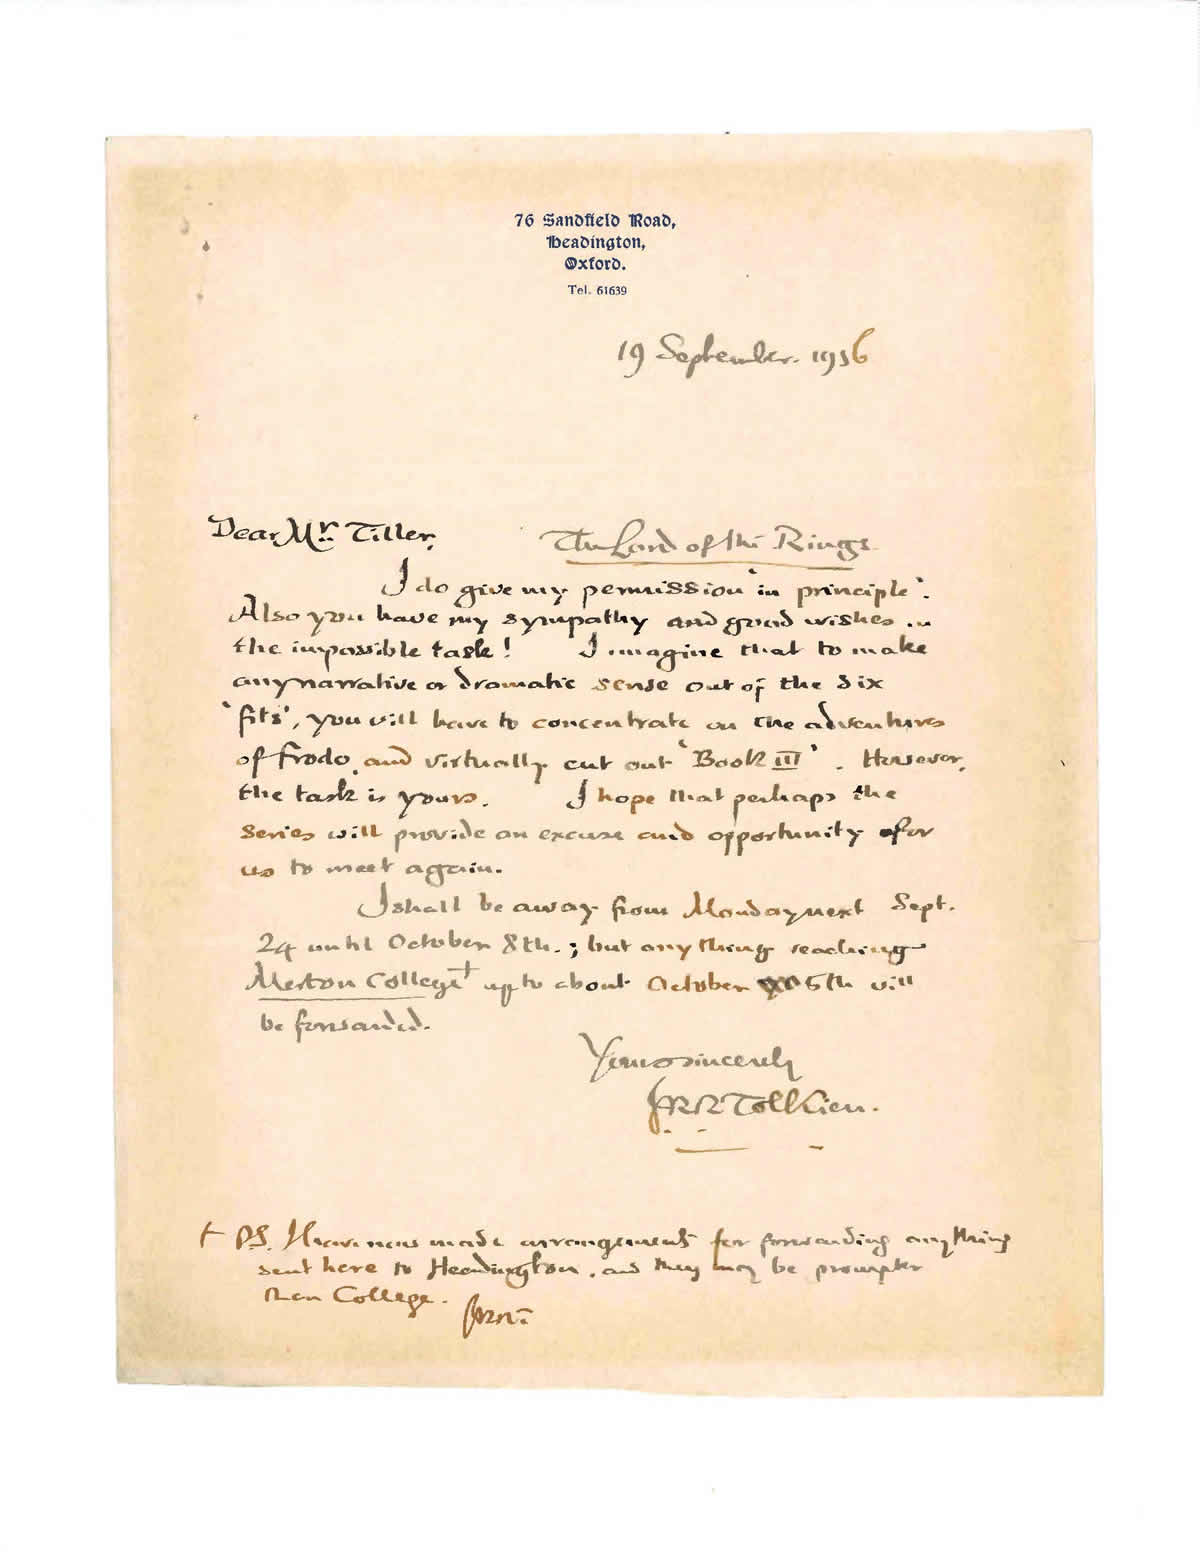 76 Sandfield Road,
Headington,
Oxford.
Tel. 61639
19 September. 1956
Dear Mr. Tiller,
The Lord of the Rings
I do give my permission 'in principle'.
Also you have my sympathy and good wishes in
the impossible task! I imagine that to make
any narrative or dramatic sense out of the six
'fits', you will have to concentrate on the adventures
of Frodo, and virtually cut out 'Book III'. However,
the task is yours. I hope that perhaps the
series will provide an excuse and opportunity for
us to meet again.
I shall be away from Monday next Sept.
24 until October 8th.; but anything reaching
Merton College† up to about October 5th will
be forwarded.
Yours sincerely
JRR Tolkien.
† P.S. I have now made arrangements for forwarding anything
sent here to Headington, and they may be prompter
than College. JRRT